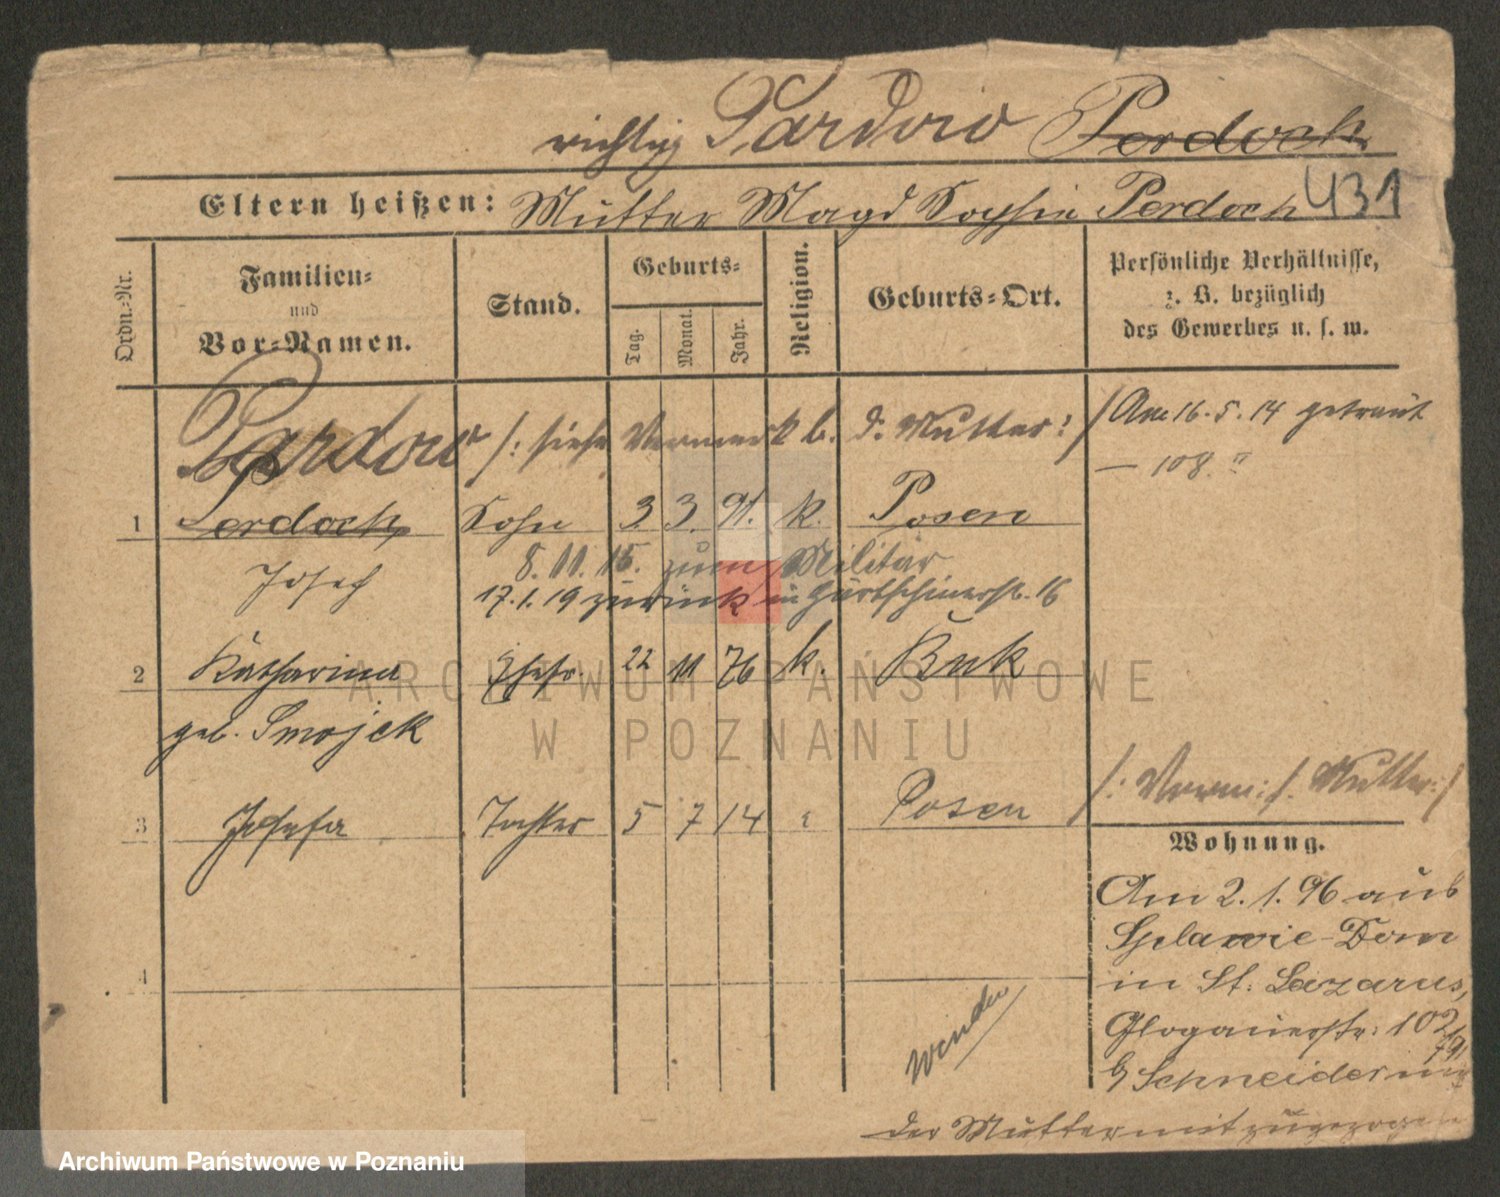 richtig Pardow Perdoch
431
Eltern heißen: Mutter Magd Sophie Perdoch
Ordn.-Nr.
Familien-
und
Vor-Namen.
Stand.
Geburts-
Tag. Monat. Jahr.
Religion.
Geburts-Ort.
Persönliche Verhältnisse,
z. B. bezüglich
des Gewerbes u. s. w.
Pardow /: siehe Vermerk b. d. Mutter :/
Am 16.5.14 getraut
— 108. "
1 Perdoch Sohn 3. 3. 91. k. Posen
Josef
8.11.15. zum Militär
17.1.19 zurück in Gurtschinerstr. 16
2 Katharina Ehefr. 22 11 76 k. Buk
geb. Smojek
/: Verm: s. Mutter :/
3 Josefa Tochter 5 7 14 " Posen
4
Wohnung.
Am 2.1.96 aus
Splawie-Dom
in St. Lazarus,
Glogauerstr: 102
b/ Schneider
wenden
der Mutter mitzugezogen
ARCHIWUM PAŃSTWOWE
W POZNANIU
Archiwum Państwowe w Poznaniu